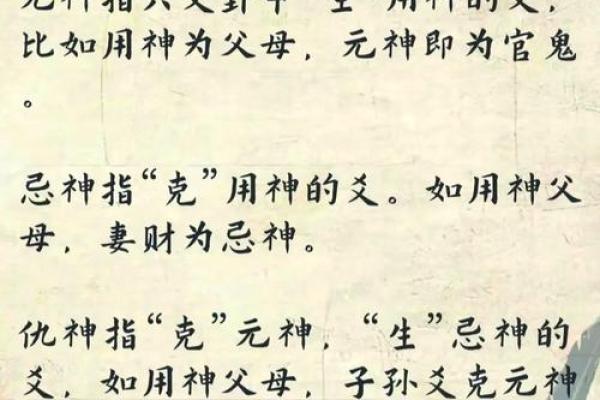 元神指六爻卦中“生”用神的爻，
比如用神为父母，元神即为官鬼
。
忌神指“克”用神的爻。如用神父
母，妻财为忌神。
仇神指“克”元神，“生”忌神的
爻，如用神父母，子孙爻克元神